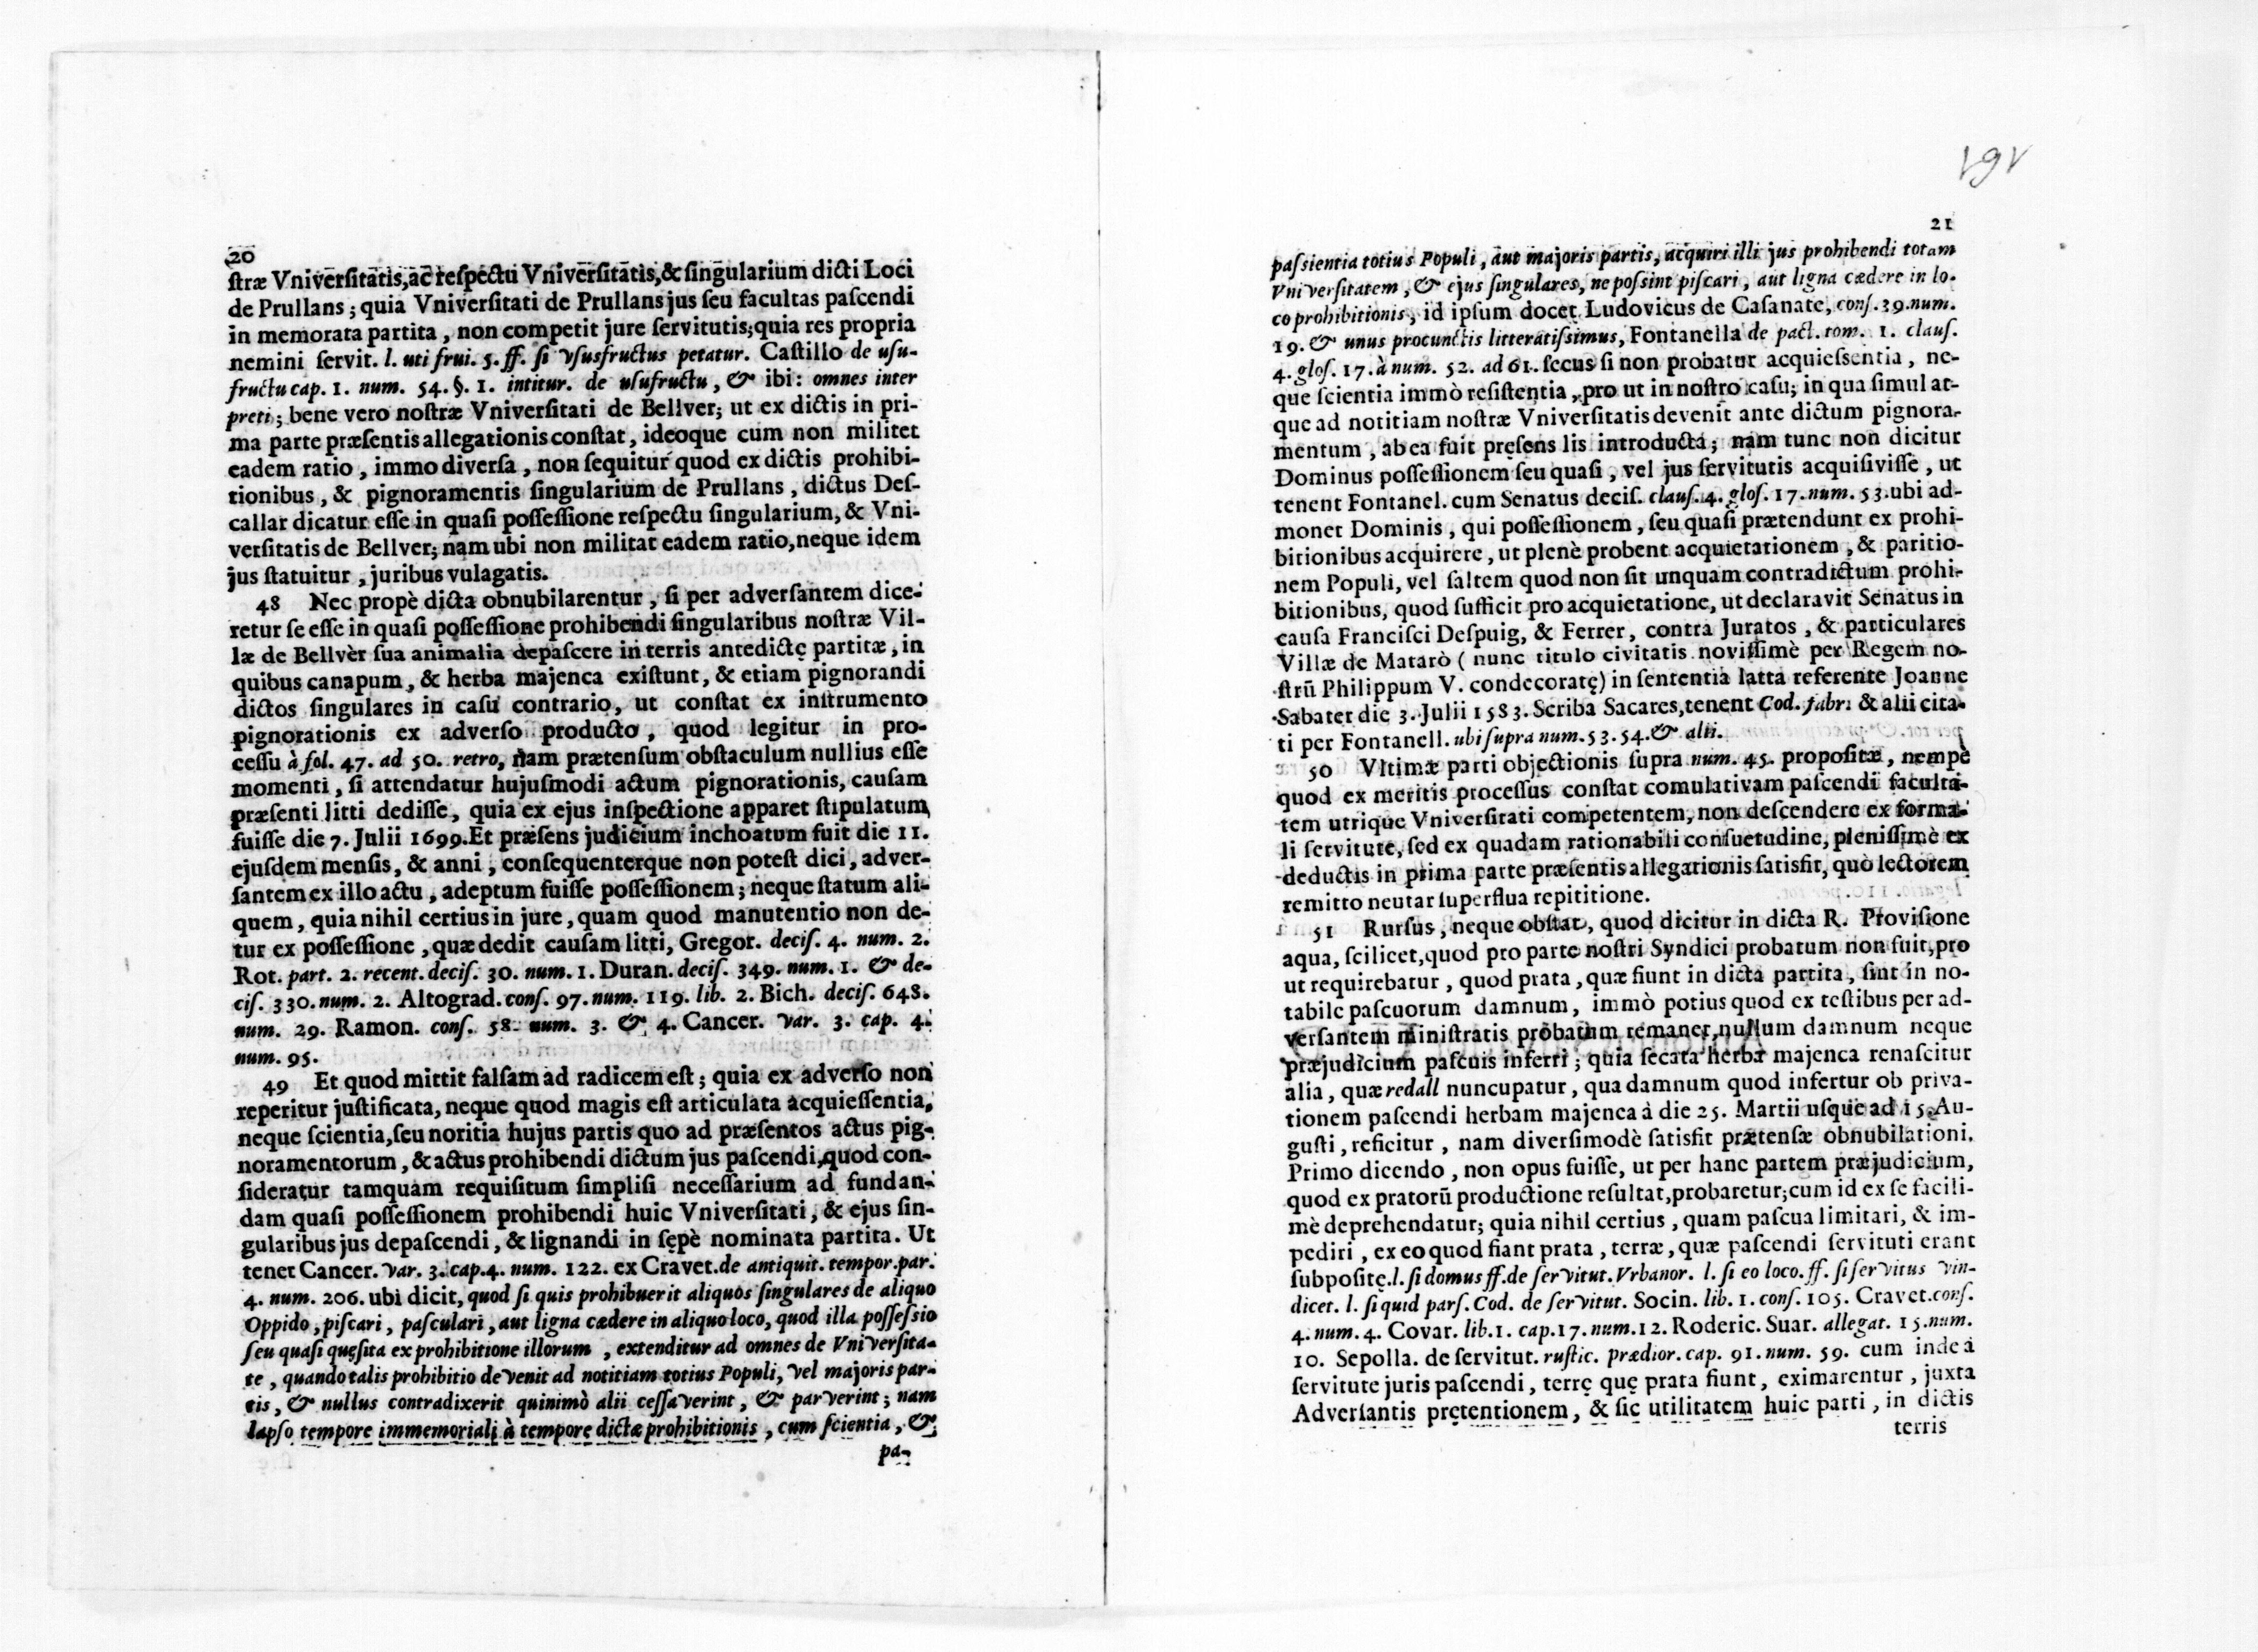 20
stræ Vniversitatis, ac respectu Vniversitatis, & singularium dicti Loci
de Prullans ; quia Vniversitati de Prullans jus seu facultas pascendi
in memorata partita , non competit jure servitutis; quia res propria
nemini servit. l. uti frui. 5. ff. si vsusfructus petatur. Castillo de usu-
fructu cap. 1. num. 54. §. 1. intitur. de usufructu , & ibi: omnes inter
preti ; bene vero nostræ Vniversitati de Bellver; ut ex dictis in pri-
ma parte præsentis allegationis constat , ideoque cum non militet
eadem ratio , immo diversa , non sequitur quod ex dictis prohibi-
tionibus , & pignoramentis singularium de Prullans , dictus Des-
callar dicatur esse in quasi possessione respectu singularium, & Vni-
versitatis de Bellver; nam ubi non militat eadem ratio, neque idem
jus statuitur , juribus vulagatis.
48 Nec propè dicta obnubilarentur , si per adversantem dice-
retur se esse in quasi possessione prohibendi singularibus nostræ Vil-
læ de Bellvèr sua animalia depascere in terris antedictę partitæ , in
quibus canapum , & herba majenca existunt , & etiam pignorandi
dictos singulares in casu contrario, ut constat ex instrumento
pignorationis ex adverso producto , quod legitur in pro-
cessu à fol. 47. ad 50. retro, nam prætensum obstaculum nullius esse
momenti , si attendatur hujusmodi actum pignorationis, causam
præsenti litti dedisse , quia ex ejus inspectione apparet stipulatum
fuisse die 7. Julii 1699. Et præsens judicium inchoatum fuit die 11.
ejusdem mensis, & anni , consequenterque non potest dici , adver-
santem ex illo actu , adeptum fuisse possessionem ; neque statum ali-
quem , quia nihil certius in jure , quam quod manutentio non de-
tur ex possessione , quæ dedit causam litti, Gregor. decis. 4. num. 2.
Rot. part. 2. recent. decis. 30. num. 1. Duran. decis. 349. num. 1. & de-
cis. 330. num. 2. Altograd. cons. 97. num. 119. lib. 2. Bich. decis. 648.
num. 29. Ramon. cons. 58. num. 3. & 4. Cancer. var. 3. cap. 4.
num. 95.
49 Et quod mittit falsam ad radicem est ; quia ex adverso non
reperitur justificata, neque quod magis est articulata acquiessentia,
neque scientia, seu noritia hujus partis quo ad præsentos actus pig-
noramentorum , & actus prohibendi dictum jus pascendi, quod con-
sideratur tamquam requisitum simplisi necessarium ad fundan-
dam quasi possessionem prohibendi huic Vniversitati , & ejus sin-
gularibus jus depascendi , & lignandi in sępè nominata partita. Ut
tenet Cancer. var. 3. cap. 4. num. 122. ex Cravet. de antiquit. tempor. par.
4. num. 206. ubi dicit, quod si quis prohibuerit aliquos singulares de aliquo
Oppido , piscari , pasculari , aut ligna cædere in aliquo loco, quod illa possessio
seu quasi quęsita ex prohibitione illorum , extenditur ad omnes de Vniversita-
te , quando talis prohibitio devenit ad notitiam totius Populi, vel majoris par-
tis , & nullus contradixerit quinimò alii cessaverint , & parverint ; nam
lapso tempore immemoriali à tempore dictæ prohibitionis , cum scientia , &
pa-
161
21
passientia totius Populi , aut majoris partis, acquiri illi jus prohibendi totam
Vniversitatem , & ejus singulares, ne possint piscari , aut ligna cædere in lo-
co prohibitionis, id ipsum docet Ludovicus de Casanate, cons. 39. num.
19. & unus procunctis litteratissimus, Fontanella de pact. tom. 1. claus.
4. glos. 17. à num. 52. ad 61. secus si non probatur acquiessentia , ne-
que scientia immò resistentia , pro ut in nostro casu; in qua simul at-
que ad notitiam nostræ Vniversitatis devenit ante dictum pignora-
mentum , ab ea fuit pręsens lis introducta ; nam tunc non dicitur
Dominus possessionem seu quasi , vel jus servitutis acquisivisse , ut
tenent Fontanel. cum Senatus decis. claus. 4. glos. 17. num. 53. ubi ad-
monet Dominis , qui possessionem , seu quasi prætendunt ex prohi-
bitionibus acquirere , ut plenè probent acquietationem , & paritio-
nem Populi, vel saltem quod non sit unquam contradictum prohi-
bitionibus, quod sufficit pro acquietatione, ut declaravit Senatus in
causa Francisci Despuig, & Ferrer, contra Juratos , & particulares
Villæ de Matarò ( nunc titulo civitatis novissimè per Regem no-
strū Philippum V. condecoratę) in sententia latta referente Joanne
Sabater die 3. Julii 1583. Scriba Sacares, tenent Cod. fabr. & alii cita-
ti per Fontanell. ubi supra num. 53. 54. & alii.
50 Vltimæ parti objectionis supra num. 45. propositæ , nempè
quod ex meritis processus constat comulativam pascendi faculta-
tem utrique Vniversitati competentem, non descendere ex forma-
li servitute, sed ex quadam rationabili consuetudine, plenissimè ex
deductis in prima parte præsentis allegationis satisfit, quò lectorem
remitto neutar superflua repititione.
51 Rursus , neque obstat , quod dicitur in dicta R. Provisione
aqua, scilicet, quod pro parte nostri Syndici probatum non fuit, pro
ut requirebatur , quod prata , quæ fiunt in dicta partita , sint in no-
tabile pascuorum damnum , immò potius quod ex testibus per ad-
versantem ministratis probatum remanet, nullum damnum neque
præjudicium pascuis inferri ; quia secata herba majenca renascitur
alia , quæ redall nuncupatur , qua damnum quod infertur ob priva-
tionem pascendi herbam majenca à die 25. Martii usque ad 15. Au-
gusti , reficitur , nam diversimodè satisfit prætensæ obnubilationi.
Primo dicendo , non opus fuisse, ut per hanc partem præjudicium,
quod ex pratorū productione resultat, probaretur; cum id ex se facili-
mè deprehendatur; quia nihil certius , quam pascua limitari, & im-
pediri , ex eo quod fiant prata , terræ , quæ pascendi servituti erant
subpositę. l. si domus ff. de servitut. Vrbanor. l. si eo loco. ff. si servitus vin-
dicet. l. si quid pars. Cod. de servitut. Socin. lib. 1. cons. 105. Cravet. cons.
4. num. 4. Covar. lib. 1. cap. 17. num. 12. Roderic. Suar. allegat. 15. num.
10. Sepolla. de servitut. rustic. prædior. cap. 91. num. 59. cum inde à
servitute juris pascendi , terrę quę prata fiunt , eximarentur , juxta
Adversantis pretentionem , & sic utilitatem huic parti , in dictis
terris